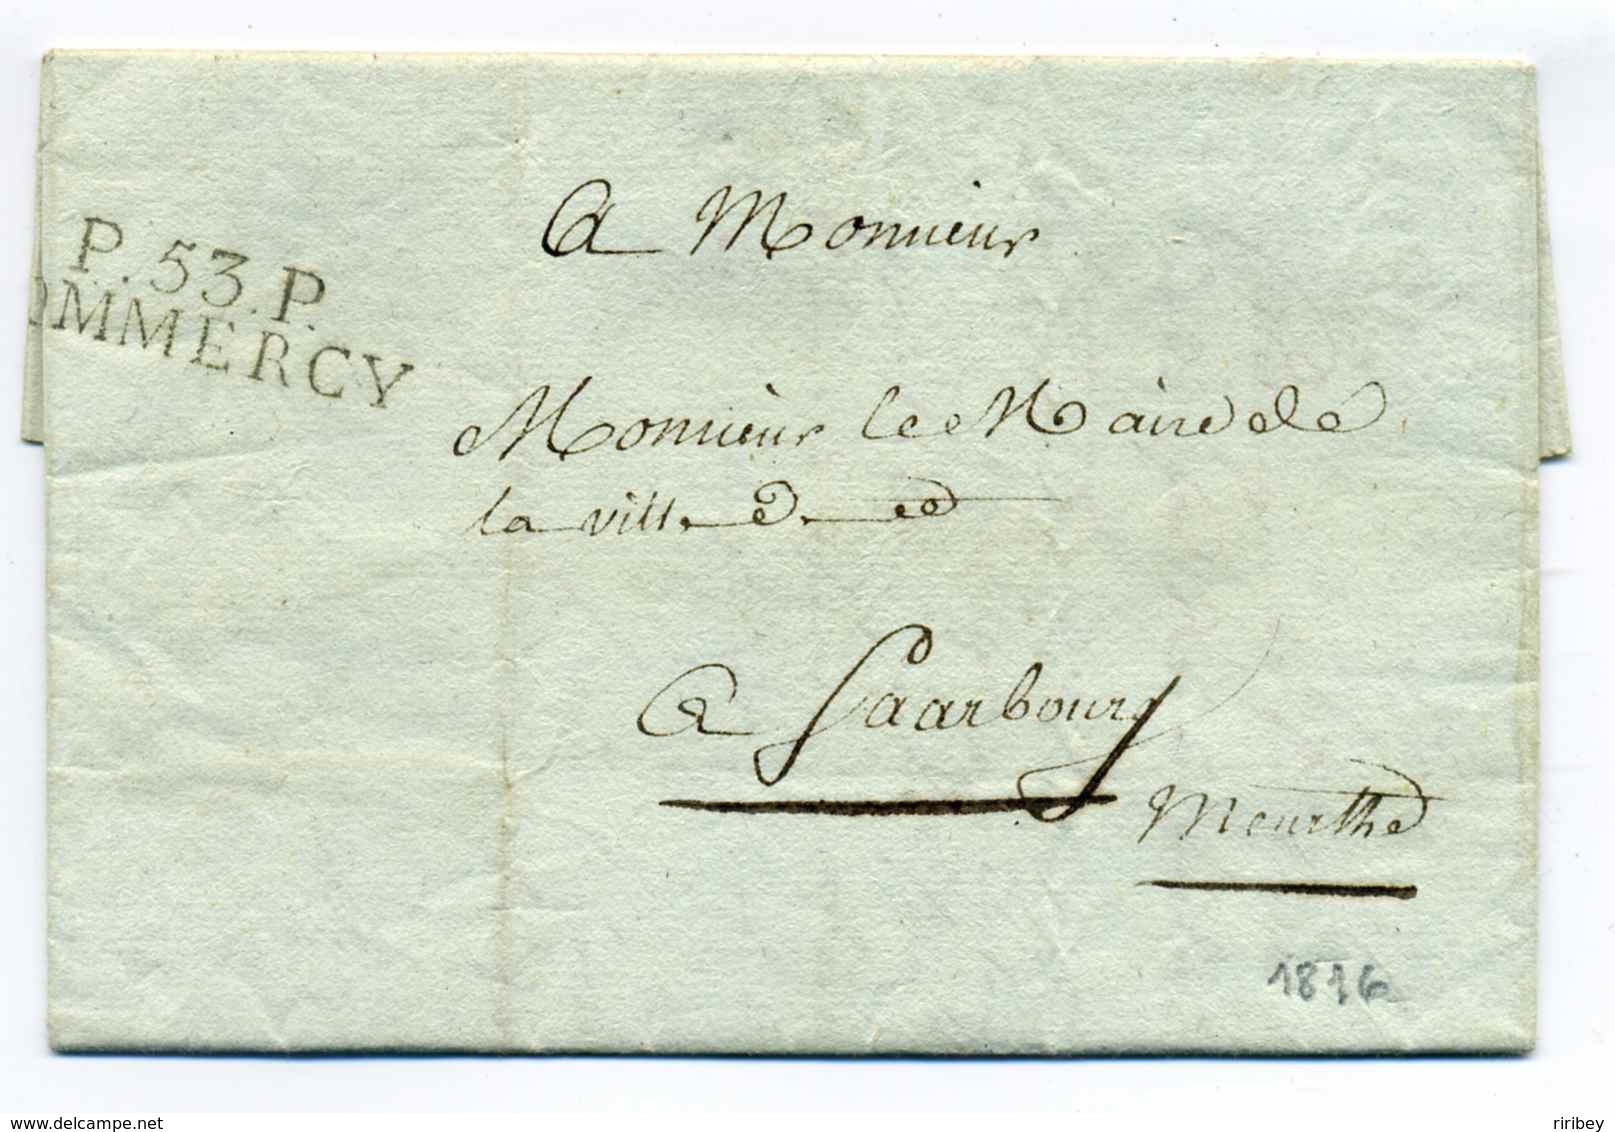 P. 53. P.
OMMERCY
A Monsieur
Monsieur le Maire de
la ville de
a Saarbourg
Meurthe
1816
www.delcampe.net
riribey